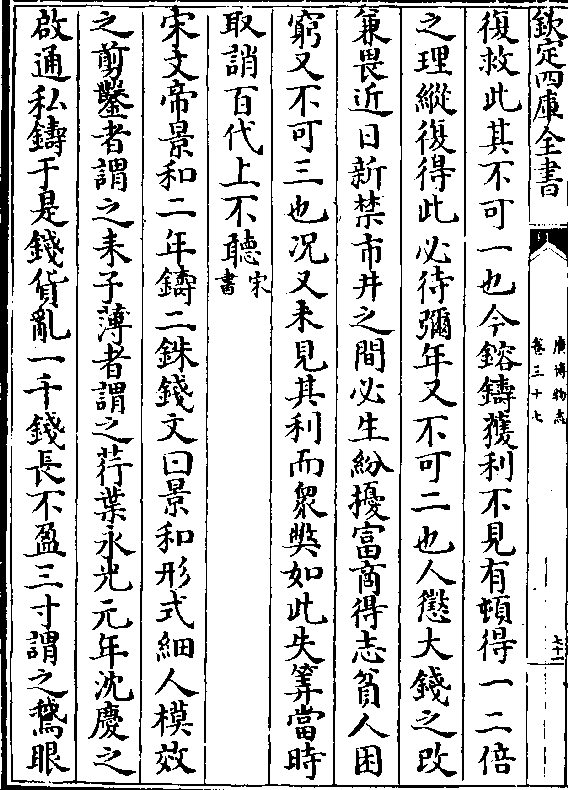 欽定四庫全書
廣博物志
卷三十七
七十一
復救此其不可一也今鎔鑄獲利不見有頓得一二倍
之理縱復得此必待彌年又不可二也人懲大錢之改
兼畏近日新禁市井之間必生紛擾富商得志貧人困
窮又不可三也况又未見其利而衆弊如此失筭當時
取誚百代上不聽宋書
宋文帝景和二年鑄二銖錢文曰景和形式細人模效
之剪鑿者謂之耒子薄者謂之荇葉永光元年沈慶之
啟通私鑄于是錢貨亂一千錢長不盈三寸謂之鵞眼